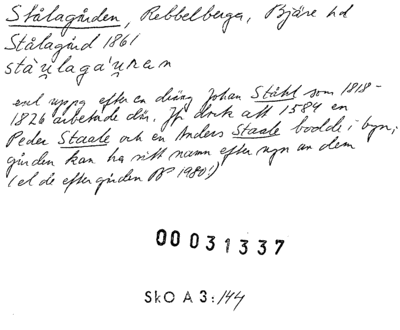 Stålagården, Rebbelberga, Bjäre hd
Stålagård 1861
stålagåuran
enl uppg efter en dräng Johan Ståhl som 1818-
1826 arbetade där. Jfr dock att 1584 en
Peder Staale och en Anders Staale bodde i byn;
gården kan ha sitt namn efter ngn av dem
(el de efter gården 1980!)
00031337
SkO A 3:144